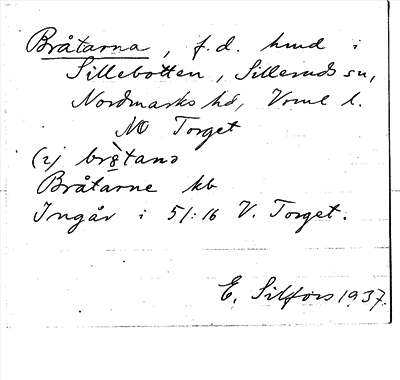 Bråtarna, f.d. hmd i
Sillebotten, Silleruds sn,
Nordmarks hd, Vrml l.
NO Torget
(i) brå̀tanə
Bråtarne kb
Ingår i 5/:16 V. Torget.
E. Silfors 1937.